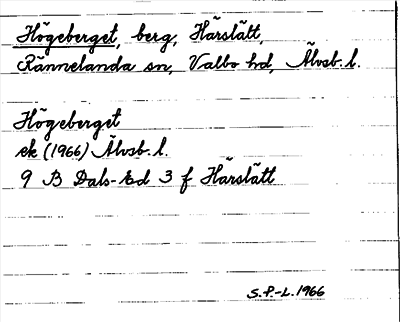 Högeberget, berg, Härslätt,
Rännelanda sn, Valbo hd, Älvsb. l.
Högeberget
ek (1966) Älvsb. l.
9 B Dals-Ed 3 f Härslätt
S.F.-L. 1966